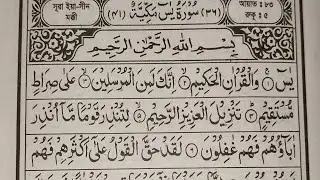 সূরা ইয়া-সীন
মক্কী
(٣٦) سُوْرَةُ يٰسٓ مَكِّيَّةٌ (٤١)
আয়াত : ৮৩
রুকু : ৫
بِسْمِ اللّٰهِ الرَّحْمٰنِ الرَّحِيْمِ
يٰسٓ ۚ وَالْقُرْاٰنِ الْحَكِيْمِ ۙ اِنَّكَ لَمِنَ الْمُرْسَلِيْنَ ۙ عَلٰى صِرَاطٍ
مُّسْتَقِيْمٍ ؕ تَنْزِيْلَ الْعَزِيْزِ الرَّحِيْمِ ۙ لِتُنْذِرَ قَوْمًا مَّاۤ اُنْذِرَ
اٰبَآؤُهُمْ فَهُمْ غٰفِلُوْنَ ۞ لَقَدْ حَقَّ الْقَوْلُ عَلٰۤى اَكْثَرِهِمْ فَهُمْ